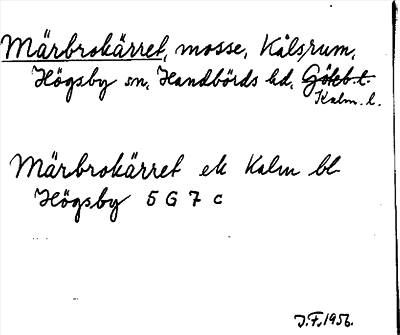 Märbrokärret, mosse, Kålsrum,
Högsby sn, Handbörds hd, Göteb. l.
Kalm. l.
Märbrokärret ek Kalm bl
Högsby 5 G 7 c
J.F. 1956.